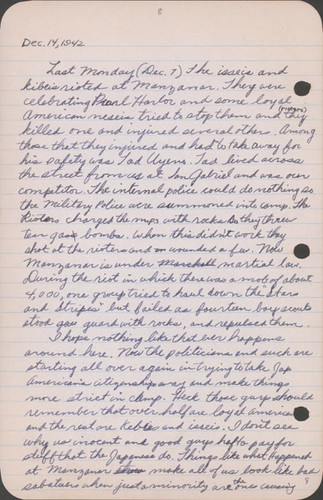 8
Dec. 14, 1942
Last Monday (Dec. 7) The isseis and
kibeis rioted at Manzanar. They were
celebrating Pearl Harbor and some loyal
American neseis tried to stop them and they
killed one and injured several others. Among
those that they injured and had to take away for
his safety was Tad Uyeno. Tad lived across
the street from us at San Gabriel and was our
competitor. The internal police could do nothing so
the Military Police were summoned into camp. The
Rioters charged the m.p.s with rocks so they threw
tear gas bombs. When this didn't work they
shot at the rioters and wounded a few. Now
Manzanar is under martial law.
During the riot in which there was a mob of about
4,000, one group tried to haul down the Stars
and Stripes but failed as fourteen boy scouts
stood guard with rocks, and repulsed them.
I hope nothing like that ever happens
around here. Now the politicians and such are
starting all over again in trying to take Jap
American's citizenship away and make things
more strict in camp. Heck those guys should
remember that over half are loyal americans
and the rest are kibeis and isseis. I don't see
why us inocent and good guys hafta pay for
stuff that the Japanese do. Things like what happened
at Manzanar make all of us look like bad
sabaturs when just a minority are the ones causing
8